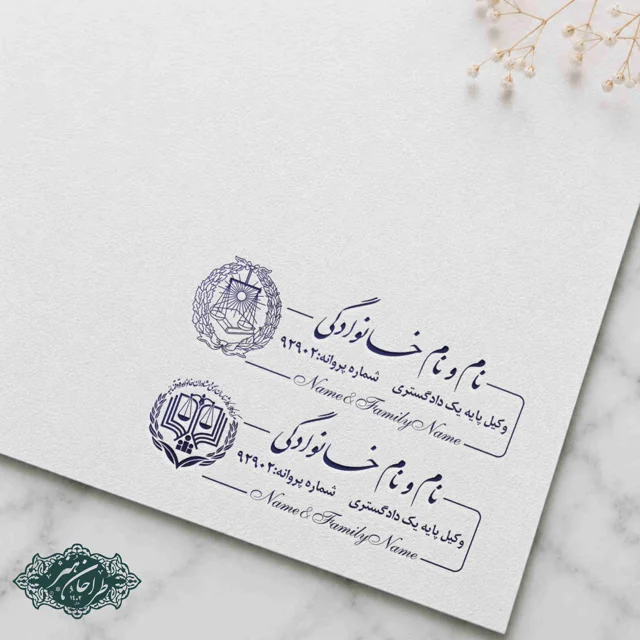 نام و نام خانوادگی
وکیل پایه یک دادگستری شماره پروانه:۹۲۹۰۲
Name & Family Name
نام و نام خانوادگی
وکیل پایه یک دادگستری شماره پروانه:۹۲۹۰۲
Name & Family Name
طراحان هنر